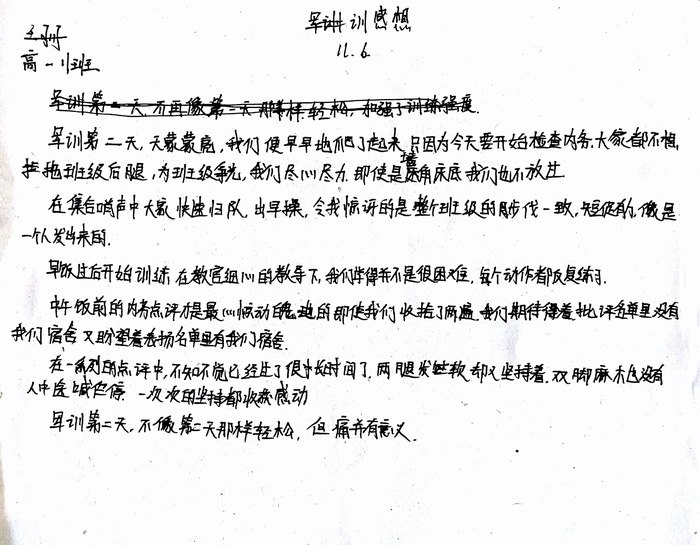 军训感想
11.6
高一11班
军训第一天,不再像第一天那样轻松,加强了训练强度.
军训第二天,天蒙蒙亮,我们便早早地爬了起来,只因为今天要开始检查内务.大家都不想
拖班级后腿,为班级争光,我们尽心尽力,即使是墙角床底我们也不放过
在集合哨声中大家快速归队,出早操,令我惊讶的是整个班级的脚步伐一致,短促有力,像是
一个人发出来的.
早饭过后开始训练 在教官细心的教导下,我们学得并不是很困难,每个动作都反复练习.
中午饭前的内务点评才是最心惊动魄的 即使我们收拾了两遍 我们期待着批评名单里没有
我们宿舍 又盼望着表扬名单里有我们宿舍.
在一系列的点评中,不知不觉已经过了很长时间了,两腿发软却又坚持着,双脚麻木也没有
人中途喊停 一次次的坚持都收获感动
军训第二天,不像第一天那样轻松,但痛并有意义.